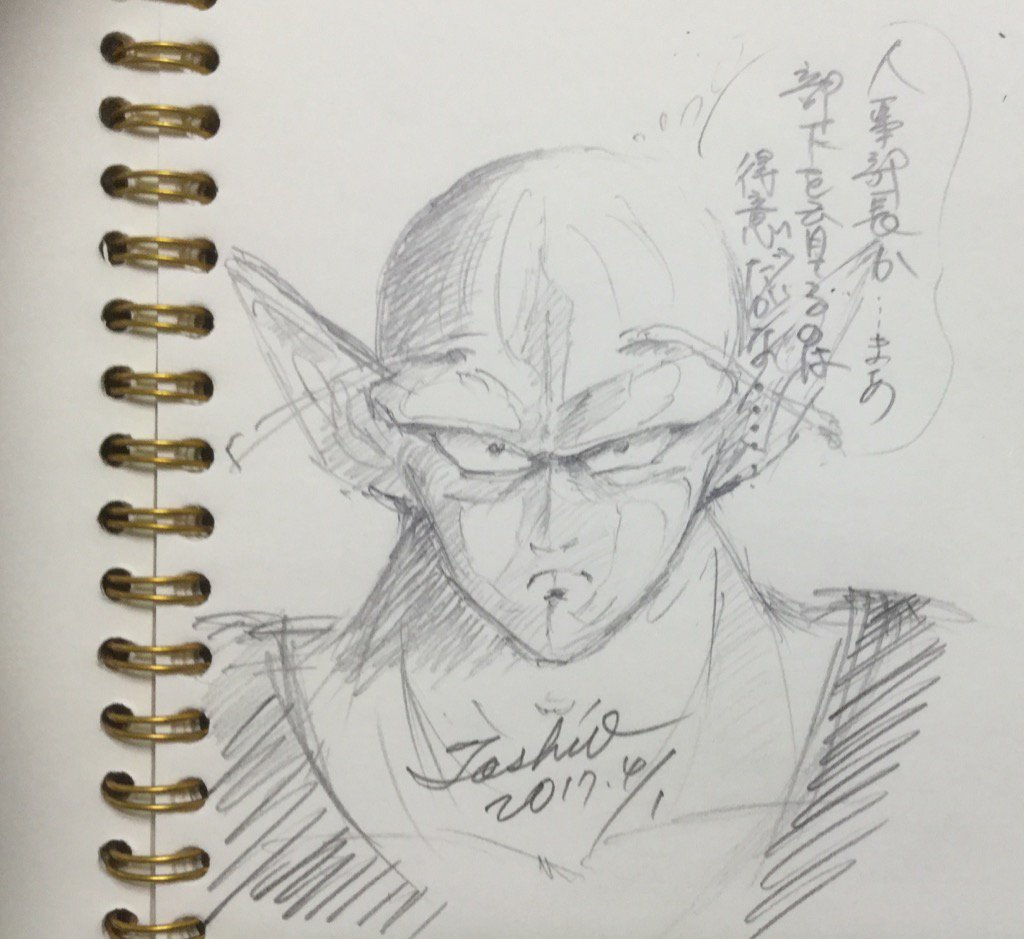 人事部長か……まあ
部下を育てるのは
得意だがな……
Toshio
2017.4/1